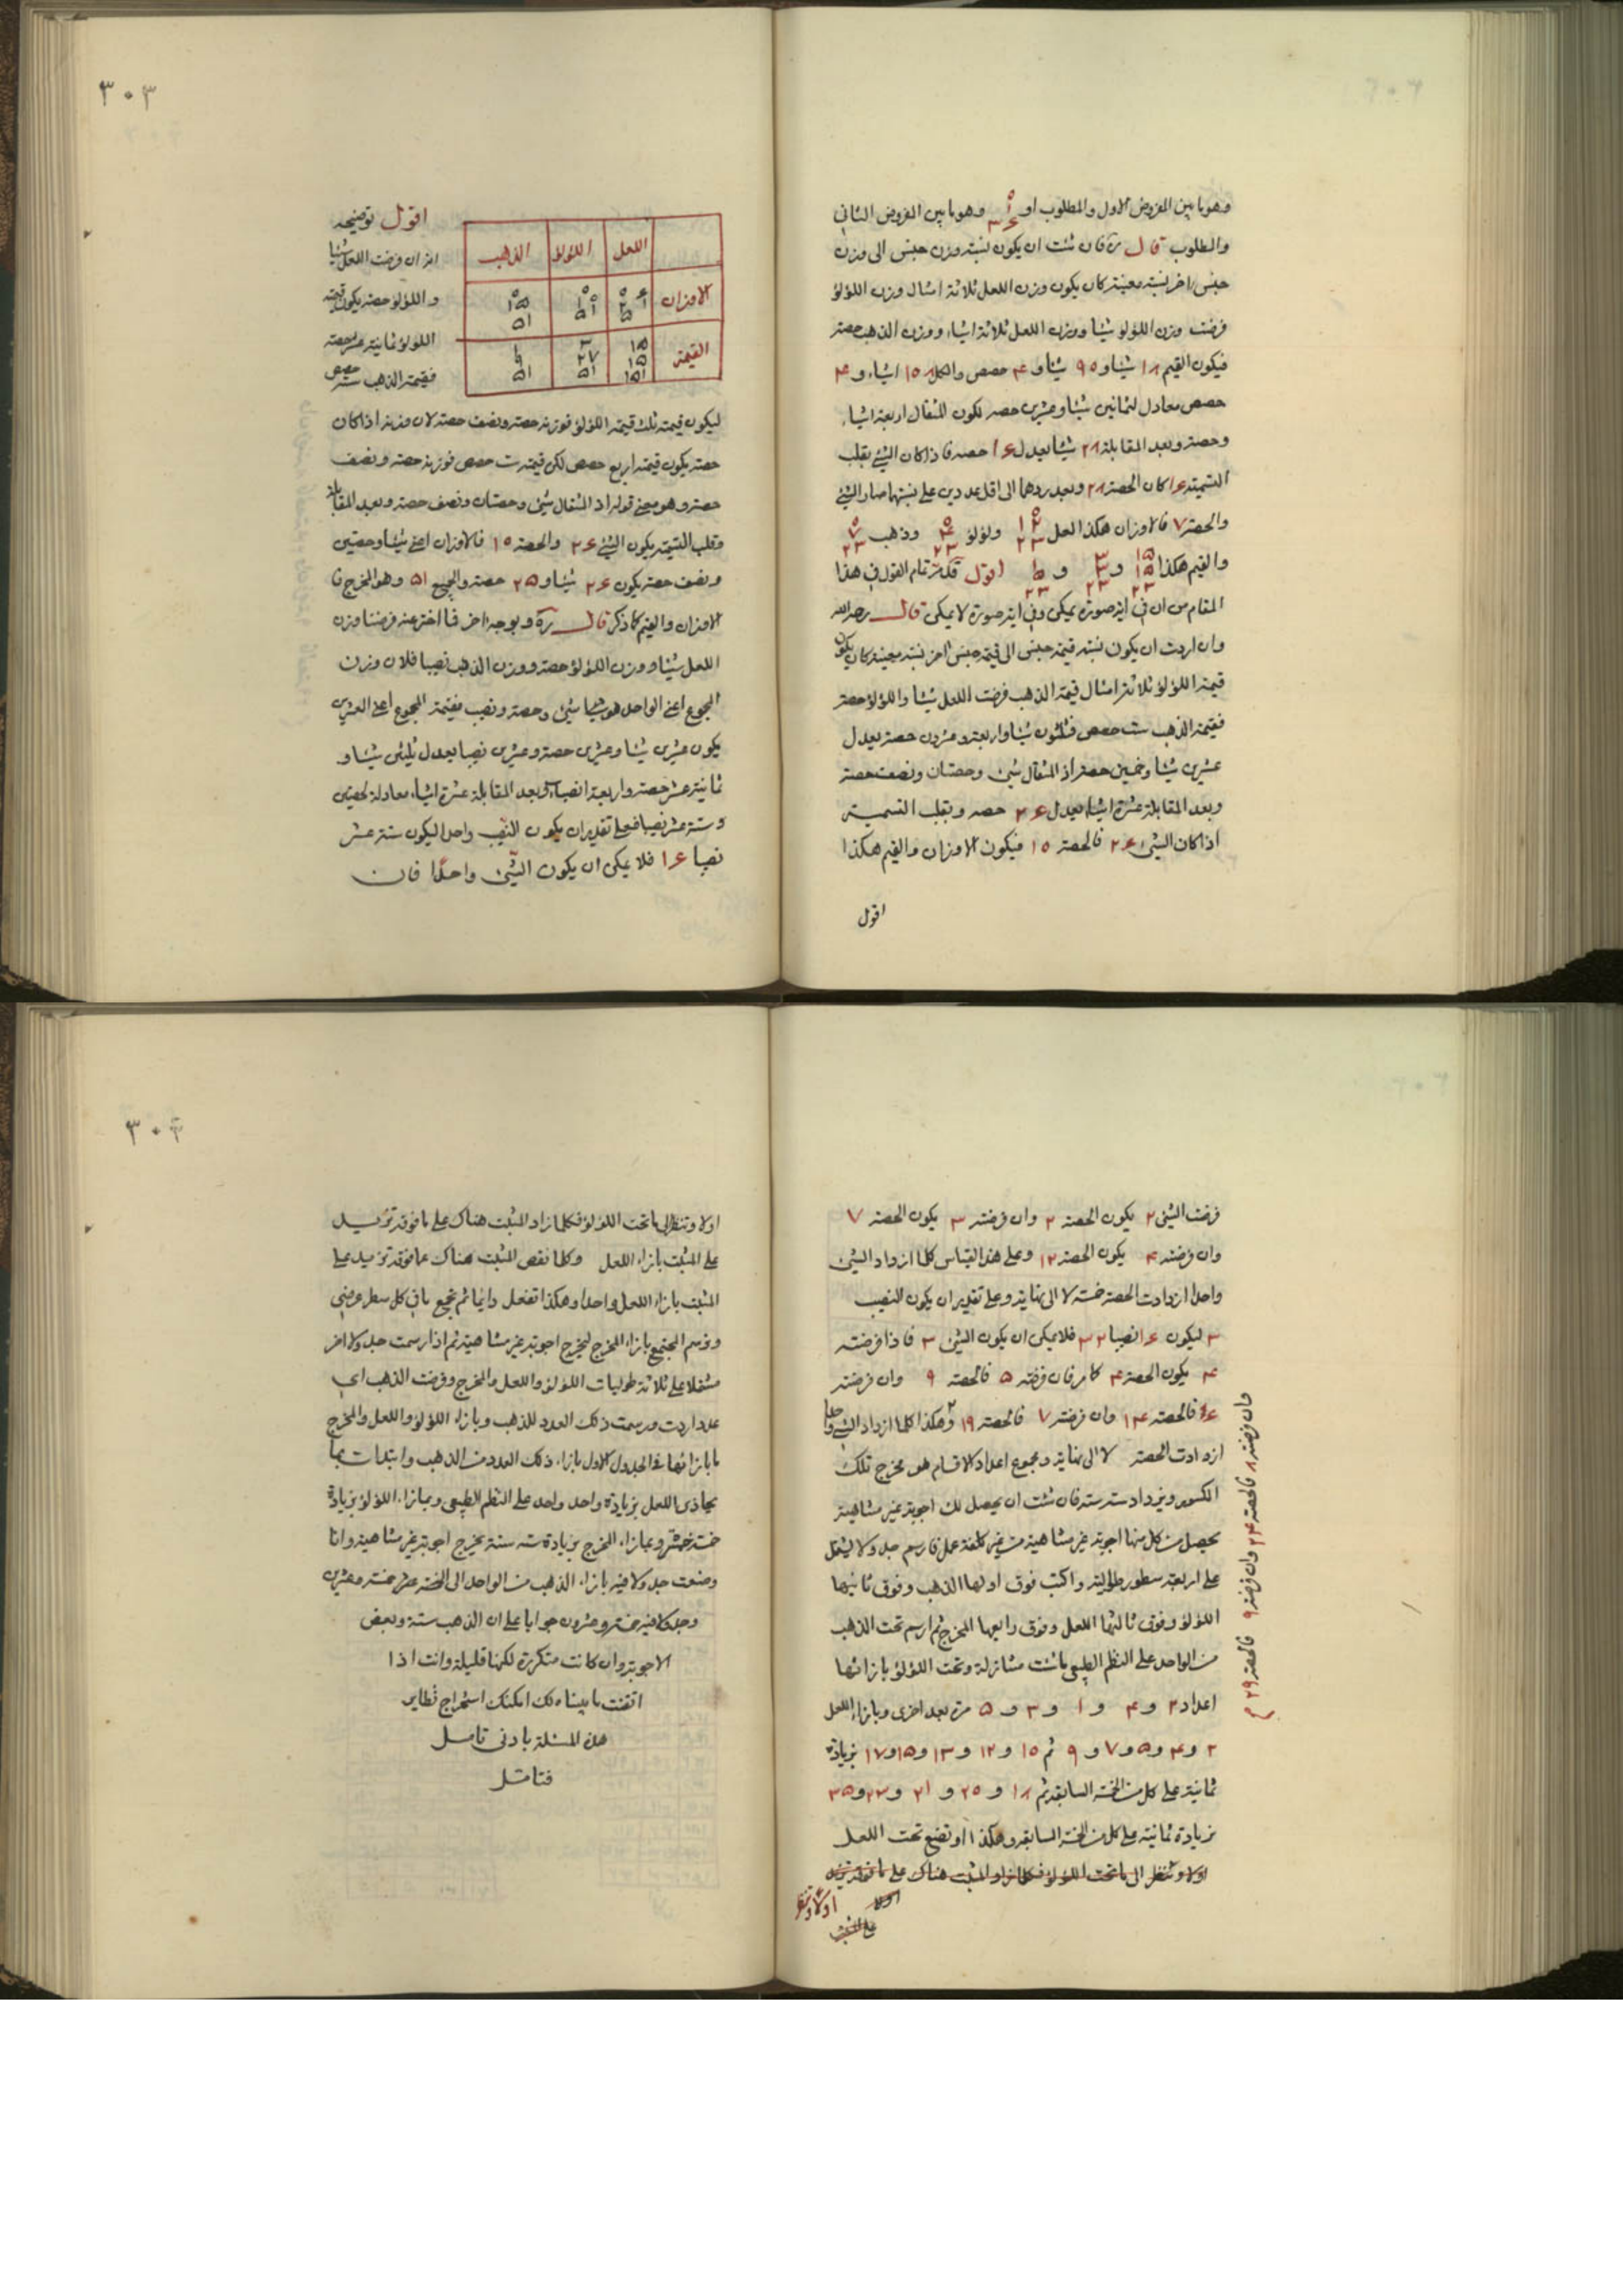 وهو ما بين المفروض الاول والمطلوب او وهو ما بين المفروض الثاني
والمطلوب قال ره فان شئت ان يكون نسبة وزن جنس الى وزن
جنس اخر نسبة معينة كان يكون وزن اللعل ثلاثة امثال وزن اللؤلؤ
فرضت وزن اللؤلؤ شيئا ووزن اللعل ثلاثة اشياء ووزن الذهب حصة
فيكون القيم ١٨ شيئا و ٩٥ شيئا و ۴ حصص والكل ١٥٨ اشياء و ۴
حصص معادل لثمانين شيئا وعشرين حصه لكون المثقال اربعة اشياء
وحصة وبعد المقابلة ٢٨ شيئا يعدل ١۶ حصه فاذا كان الشئ بقلب
التسمية ١۶ كان الحصة ٢٨ وبعد ردهما الى اقل عددين على نسبتهما صار الشئ
والحصة ٧ فالاوزان هكذا لعل ولؤلؤ وذهب
والقيم هكذا و و اقول قد مر تمام القول في هذا
المقام من ان في اية صورة يمكن وفي اية صورة لا يمكن قال رحمه الله
وان اردت ان يكون نسبة قيمة جنس الى قيمة جنس اخر نسبة معينة كان يكون
قيمة اللؤلؤ ثلاثة امثال قيمة الذهب فرضت اللعل شيئا واللؤلؤ حصة
فقيمة الذهب ست حصص فثلثون شيئا واربعة وعشرون حصة يعدل
عشرين شيئا وخمسين حصة اذ المثقال شئ وحصتان ونصف حصة
وبعد المقابلة عشرة اشياء يعدل ٢۶ حصه وبقلب التسمية
اذا كان الشئ ٢۶ فالحصة ١٥ فيكون الاوزان والقيم هكذا
اقول
٣٠٣
اللعل اللؤلؤ الذهب
الاوزان
القيمة
اقول توضيحه
انه ان فرضت اللعل شيئا
واللؤلؤ حصة يكون قيمة
اللؤلؤ ثمانية عشر حصة
فقيمة الذهب ستة حصص
ليكون قيمته ثلث قيمة اللؤلؤ فوزنه حصة ونصف حصة لان وزنه اذا كان
حصة يكون قيمته اربع حصص لكن قيمته ست حصص فوزنه حصة ونصف
حصة وهو معنى قوله اذ المثقال شئ وحصتان ونصف حصة وبعد المقابلة
وقلب التسمية يكون الشئ ٢۶ والحصة ١٥ فالاوزان اعنى شيئا وحصتين
ونصف حصة يكون ٢۶ شيئا و ٢۵ حصة والجميع ۵١ وهو المخرج فا
لاوزان والقيم كما ذكر قال ره وبوجه اخر مما اخترعنه فرضنا وزن
اللعل شيئا ووزن اللؤلؤ حصة ووزن الذهب نصيبا فلان وزن
المجموع اعنى الواحد هو شئ وحصة ونصيب فقيمة المجموع اعنى العشرين
يكون عشرين شيئا وعشرين حصة وعشرين نصيبا يعدل ثلثين شيئا و
ثمانية عشر حصة واربعة انصباء وبعد المقابلة عشرة اشياء معادلة لحصتين
وستة عشر نصيبا فعلى تقدير ان يكون النصيب واحدا ليكون ستة عشر
نصيبا ١۶ فلا يمكن ان يكون الشئ واحدا فان
فرضت الشئ ٢ يكون الحصة ٢ وان فرضته ٣ يكون الحصة ٧
وان فرضته ۴ يكون الحصة ١٢ وعلى هذا القياس كلما ازداد الشئ
واحدا ازدادت الحصة خمسة لا الى نهاية وعلى تقدير ان يكون النصيب
٢ ليكون ١۶ نصيبا ٣٢ فلا يمكن ان يكون الشئ ٣ فاذا فرضته
۴ يكون الحصة ۴ كما مر فان فرضته ۵ فالحصة ٩ وان فرضته
۶ فالحصة ١۴ وان فرضته ٧ فالحصة ١٩ وهكذا كلما ازداد الشئ واحدا
ازدادت الحصة لا الى نهاية ومجموع اعداد الاقسام هو مخرج تلك
الكسور ويزداد ستة ستة فان شئت ان يحصل لك اجوبة غير متناهية
يحصل من كل منها اجوبة غير متناهية من غير كلفة عمل فارسم جدولا يشتمل
على اربعة سطور طولية واكتب فوق اولها الذهب وفوق ثانيها
اللؤلؤ وفوق ثالثها اللعل وفوق رابعها المخرج ثم ارسم تحت الذهب
من الواحد على النظم الطبيعي ما شئت متنازلة وتحت اللؤلؤ بازائها
اعداد ٢ و ۴ و ١ و ٣ و ۵ مرة بعد اخرى وبازاء اللعل
٢ و ۴ و ۵ و ٧ و ٩ ثم ١٠ و ١٢ و ١٣ و ١۵ و ١٧ بزيادة
ثمانية على كل من الخمسة السابقة ثم ١٨ و ٢٠ و ٢١ و ٢٣ و ٢۵
بزيادة ثمانية على كل من الخمسة السابقة وهكذا او تضع تحت اللعل
اولا وتنظر الى ما تحت اللؤلؤ فكلما زاد المثبت هناك على ما فوقه تزيد
اولا وتنظر
على المثبت
وان فرضته ٨ فالحصة ٢۴ وان فرضته ٩ فالحصة ٢٩
٣٠۴
اولا وتنظر الى ما تحت اللؤلؤ فكلما زاد المثبت هناك على ما فوقه تزيد
على المثبت بازاء اللعل وكلما نقص المثبت هناك عما فوقه تزيد على
المثبت بازاء اللعل واحدا وهكذا تفعل دائما ثم تجمع ما في كل سطر عرضي
وترسم المجتمع بازاء المخرج ليخرج اجوبة غير متناهية ثم اذا رسمت جدولا اخر
مشتملا على ثلاثة طوليات اللؤلؤ واللعل والمخرج وفرضت الذهب اي
عدد اردت ورسمت ذلك العدد للذهب وبازاء اللؤلؤ واللعل والمخرج
ما بازائها في الجدول الاول بازاء ذلك العدد من الذهب وابتدات بما
يحاذى اللعل بزيادة واحد واحد على النظم الطبيعي وبما بازاء اللؤلؤ بزيادة
خمسة خمسة وبما بازاء المخرج بزيادة ستة ستة يخرج اجوبة غير متناهية وانا
وضعت جدولا فيه بازاء الذهب من الواحد الى الخمسة عشر خمسة وعشرين
وجدولا فيه خمسة وعشرون جوابا على ان الذهب ستة وبعض
الاجوبة وان كانت متكررة لكنها قليلة وانت اذا
اتقنت ما بيناه لك امكنك استخراج نظاير
هذه المسئلة بادنى تامل
فتامل